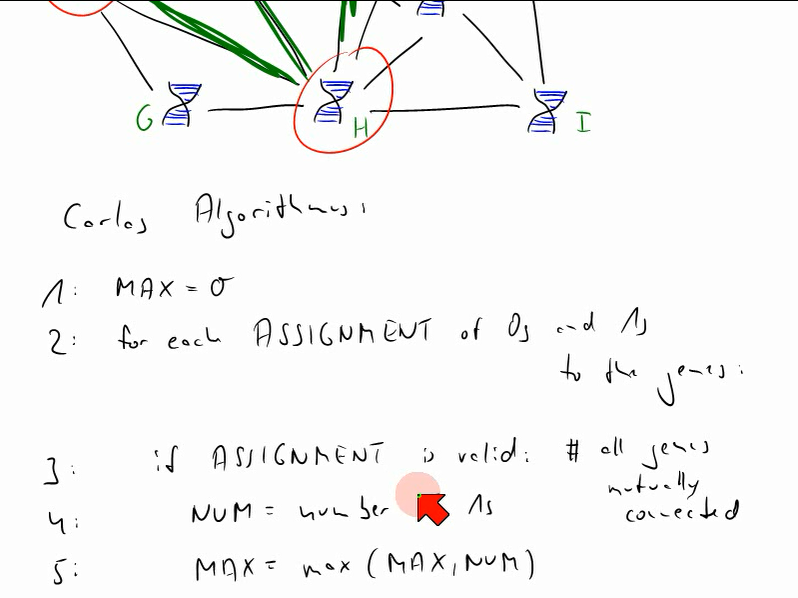 G
H
I
Carlos Algorithmus:
1: MAX = 0
2: for each ASSIGNMENT of 0s and 1s
to the genes:
3: if ASSIGNMENT is valid: # all genes
mutually
connected
4: NUM = number 1s
5: MAX = max (MAX, NUM)